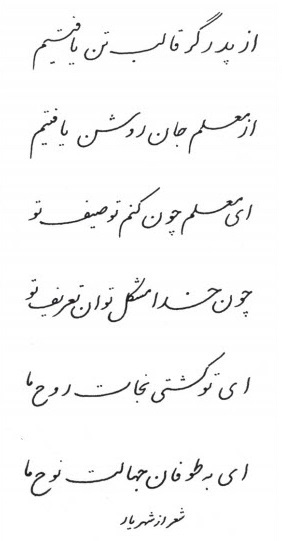 از پدر گر قالب تن یافتیم
از معلم جان روشن یافتیم
ای معلم چون کنم توصیف تو
چون خدا مشکل توان تعریف تو
ای تو کشتی نجات روح ما
ای به طوفان جهالت نوح ما
شعر از شهریار